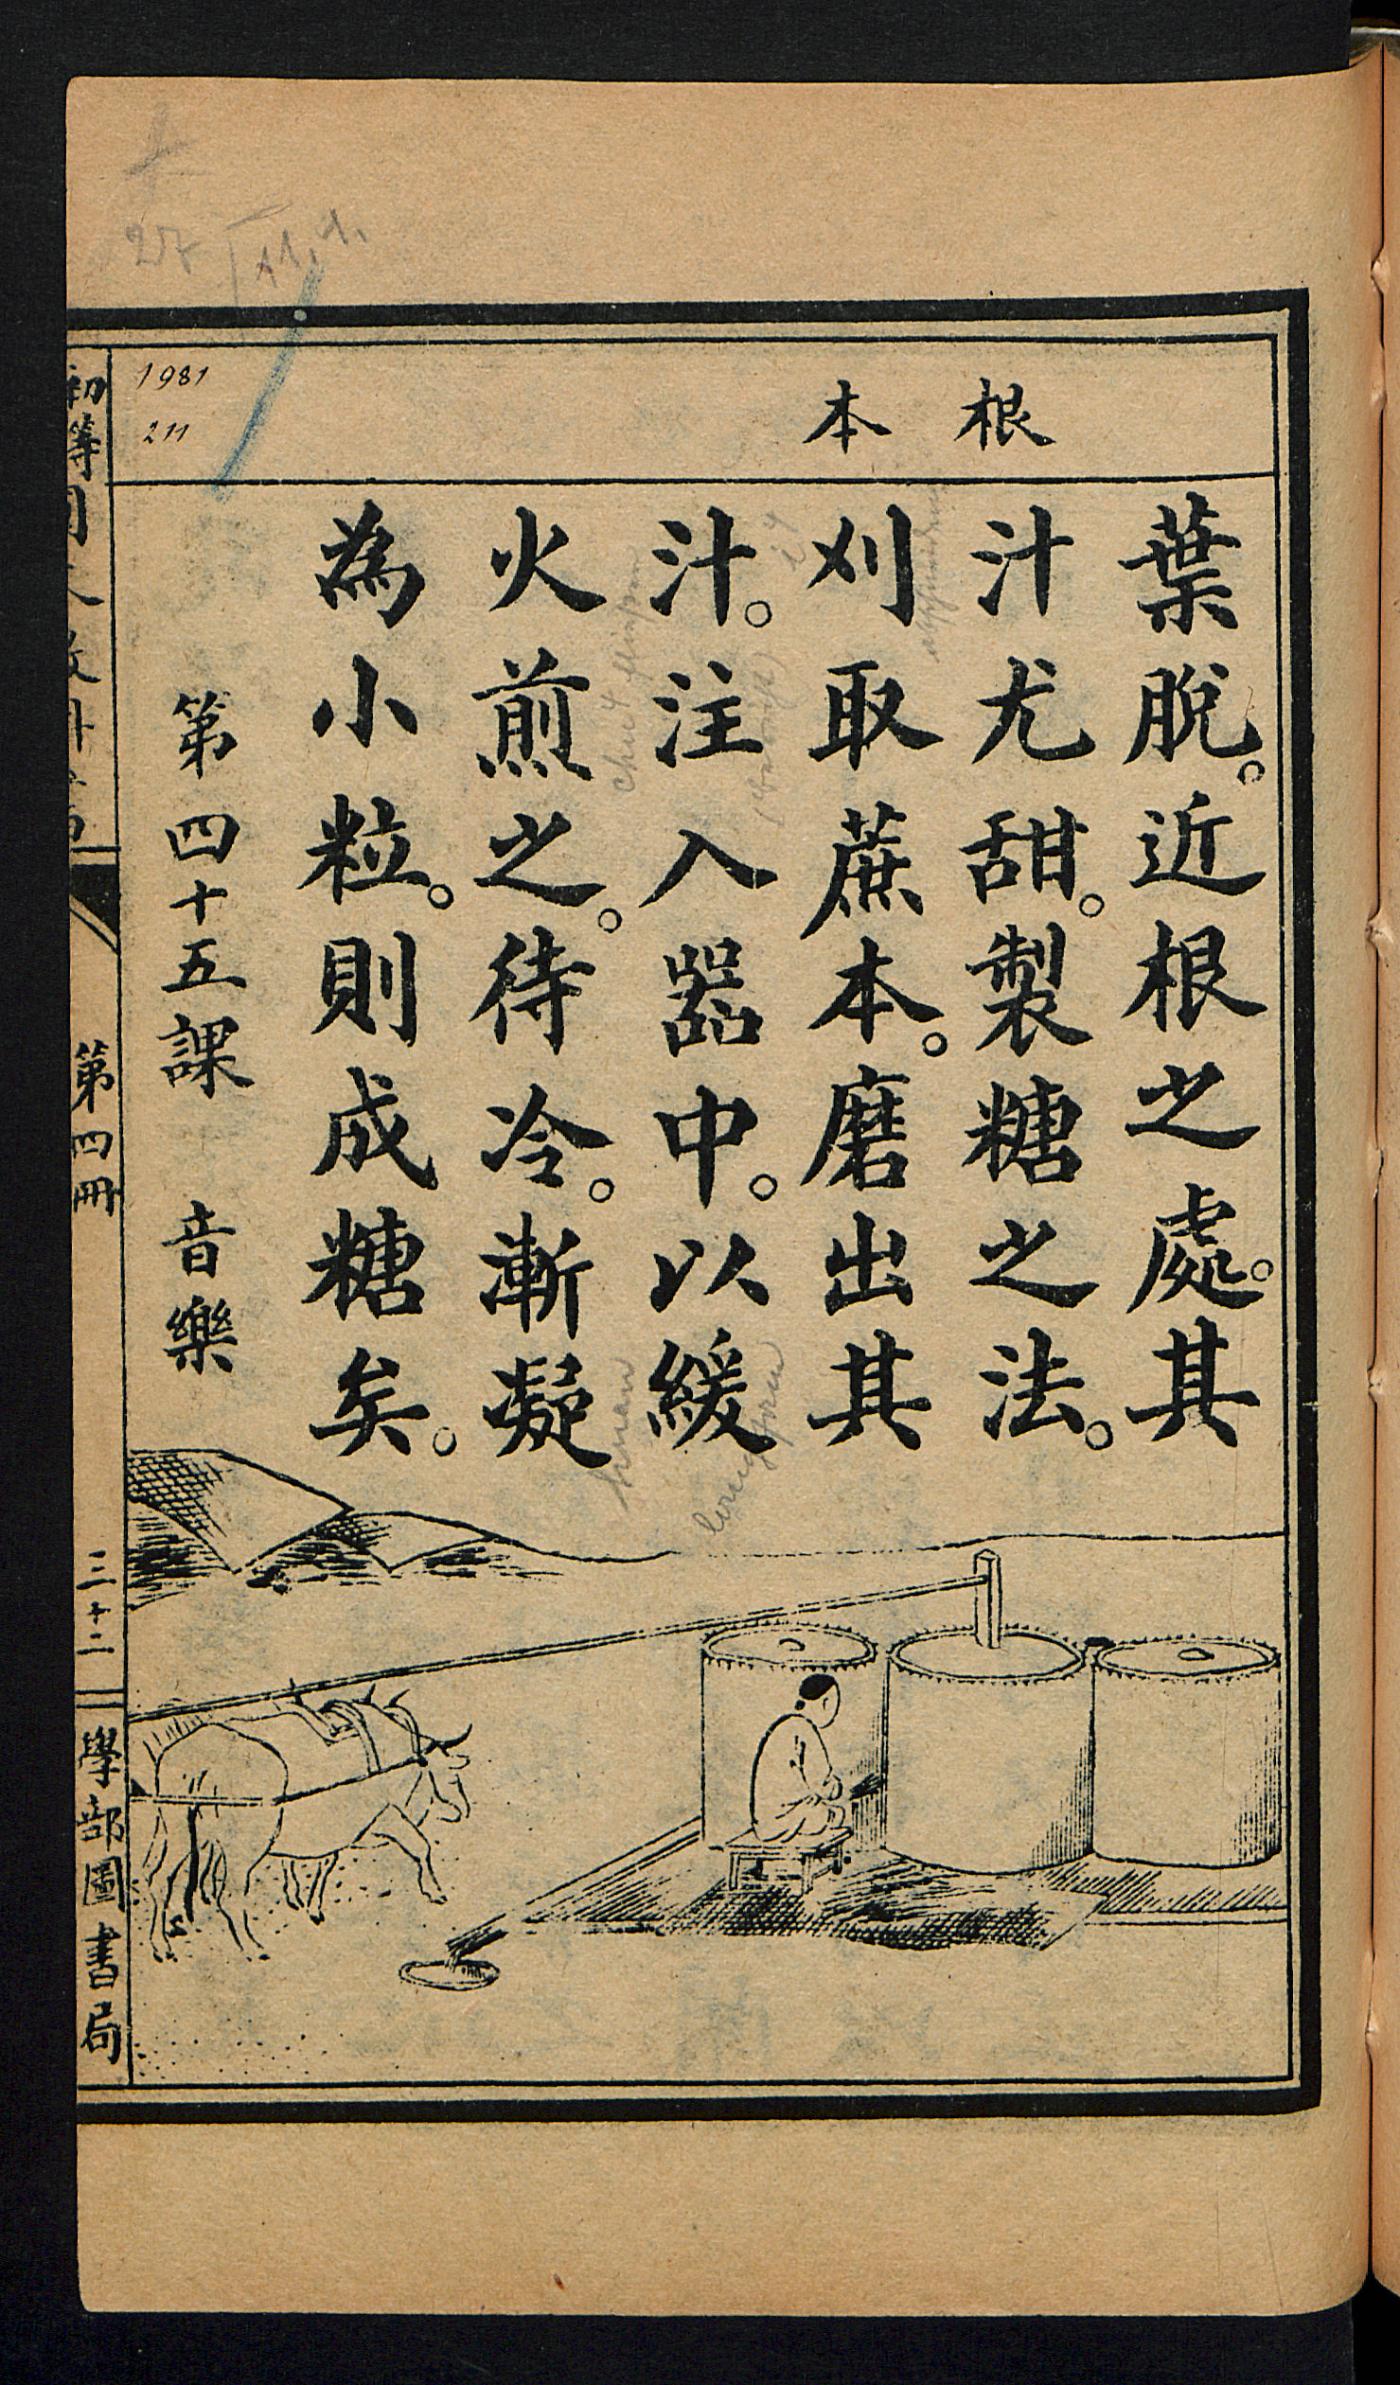 根 本
葉脫。近根之處。其
汁尤甜。製糖之法。
刈取蔗本。磨出其
汁。注入器中。以緩
火煎之。待冷。漸凝
為小粒。則成糖矣。
第四十五課 音樂
1981
211
初等國文教科書
第四冊
三十二
學部圖書局